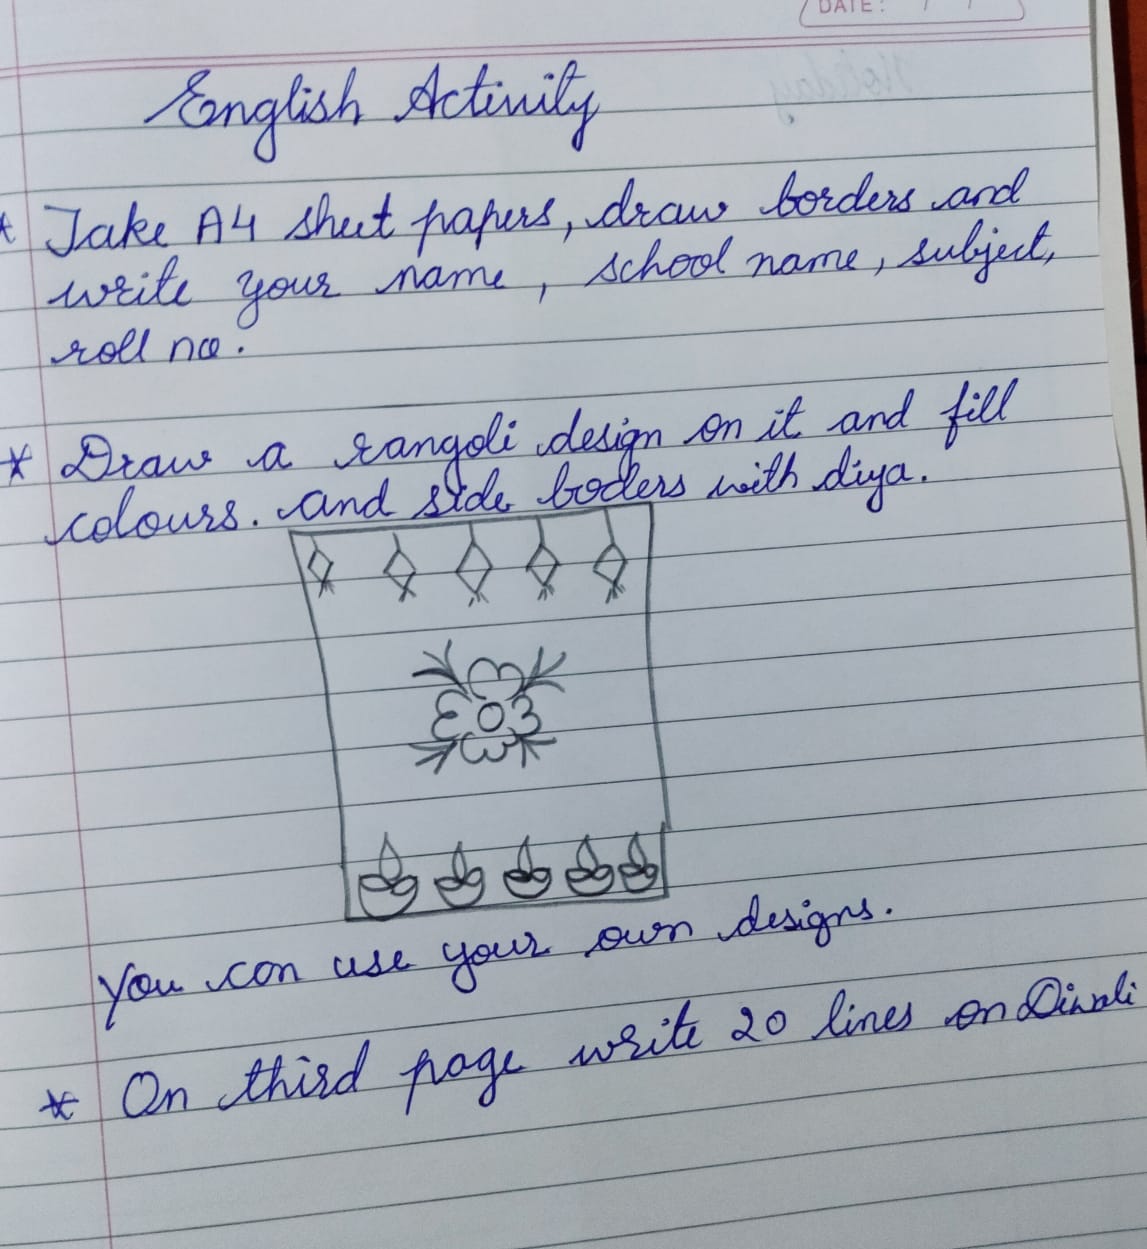 DATE: / /
English Activity
* Take A4 sheet papers, draw borders and
write your name, school name, subject,
roll no.
* Draw a rangoli design on it and fill
colours. and side boders with diya.
You can use your own designs.
* On third page write 20 lines on Diwali